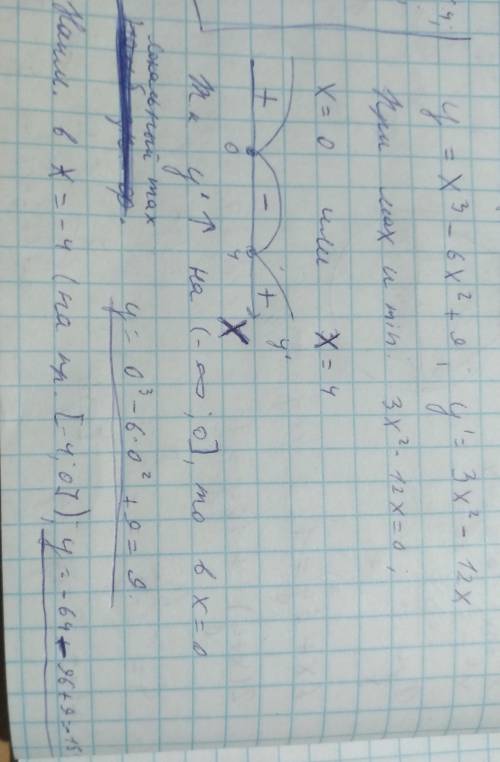 y = x³ - 6x² + 9; y' = 3x² - 12x
При max и min. 3x² - 12x = 0;
x = 0 или x = 4
+ 0 - 4 + y'
x
Тк y' ↑ на (-∞; 0], то в x = 0
локальный max
y = 0³ - 6·0² + 9 = 9.
Наим. в x = -4 (на пр. [-4; 0]) y = -64 - 96 + 9 =